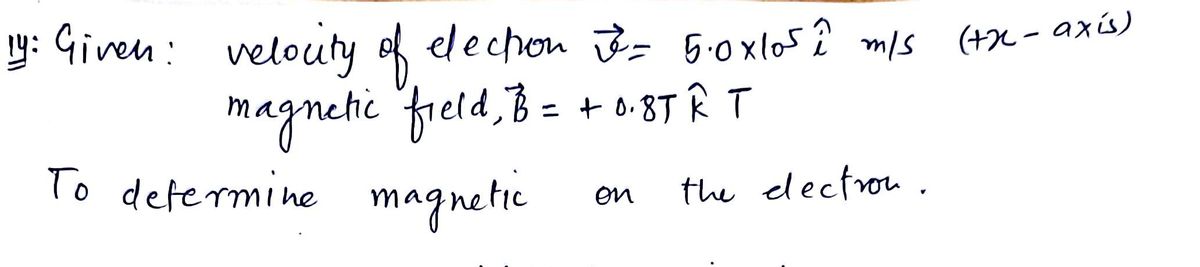 14: Given: velocity of electron v⃗ = 5.0x10⁵ î m/s (+x - axis)
magnetic field, B⃗ = + 0.8T k̂ T
To determine magnetic on the electron.